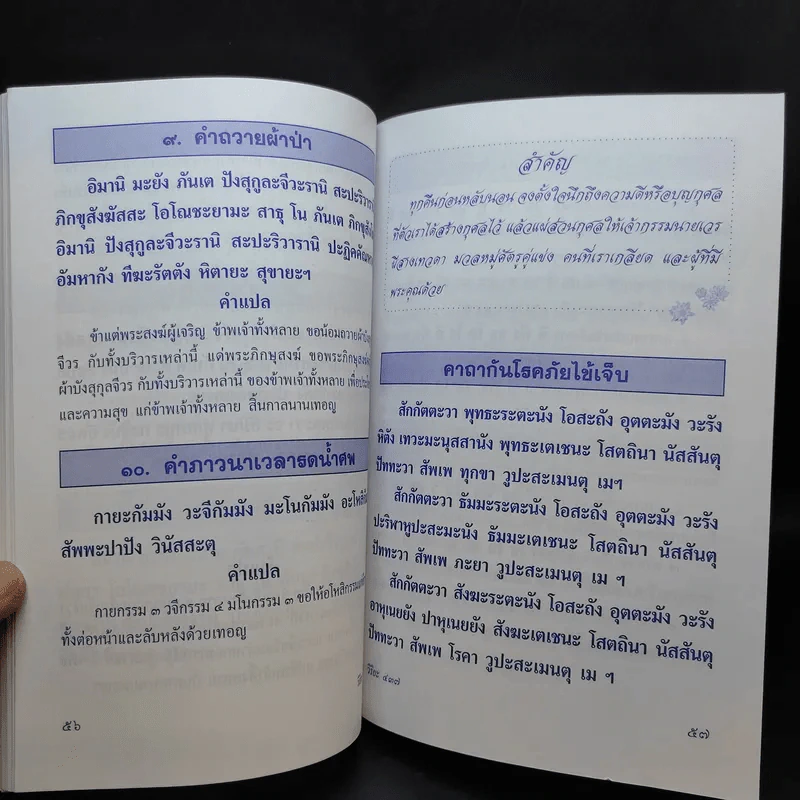 ๙. คำถวายผ้าป่า
อิมานิ มะยัง ภันเต ปังสุกูละจีวะรานิ สะปะริวารา
ภิกขุสังฆัสสะ โอโณชะยามะ สาธุ โน ภันเต ภิกขุสัง
อิมานิ ปังสุกูละจีวะรานิ สะปะริวารานิ ปะฏิคคัณห
อัมหากัง ทีฆะรัตตัง หิตายะ สุขายะฯ
คำแปล
ข้าแต่พระสงฆ์ผู้เจริญ ข้าพเจ้าทั้งหลาย ขอน้อมถวายผ้าบัง
จีวร กับทั้งบริวารเหล่านี้ แด่พระภิกษุสงฆ์ ขอพระภิกษุสงฆ์
ผ้าบังสุกุลจีวร กับทั้งบริวารเหล่านี้ ของข้าพเจ้าทั้งหลาย เพื่อประ
และความสุข แก่ข้าพเจ้าทั้งหลาย สิ้นกาลนานเทอญ
๑๐. คำภาวนาเวลารดน้ำศพ
กายะกัมมัง วะจีกัมมัง มะโนกัมมัง อะโหสิ
สัพพะปาปัง วินัสสะตุ
คำแปล
กายกรรม ๓ วจีกรรม ๔ มโนกรรม ๓ ขอให้อโหสิกรรม
ทั้งต่อหน้าและลับหลังด้วยเทอญ
๕๖
สำคัญ
ทุกคืนก่อนหลับนอน จงตั้งใจนึกถึงความดีหรือบุญกุศล
ที่ตัวเราได้สร้างกุศลไว้ แล้วแผ่ส่วนกุศลให้เจ้ากรรมนายเวร
ผีสางเทวดา มวลหมู่ศัตรูคู่แข่ง คนที่เราเกลียด และผู้ที่มี
พระคุณด้วย
คาถากันโรคภัยไข้เจ็บ
สักกัตตะวา พุทธะระตะนัง โอสะถัง อุตตะมัง วะรัง
หิตัง เทวะมะนุสสานัง พุทธะเตเชนะ โสตถินา นัสสันตุ
ปัททะวา สัพเพ ทุกขา วูปะสะเมนตุ เมฯ
สักกัตตะวา ธัมมะระตะนัง โอสะถัง อุตตะมัง วะรัง
ปะริฬาหูปะสะมะนัง ธัมมะเตเชนะ โสตถินา นัสสันตุ
ปัททะวา สัพเพ ภะยา วูปะสะเมนตุ เม ฯ
สักกัตตะวา สังฆะระตะนัง โอสะถัง อุตตะมัง วะรัง
อาหุเนยยัง ปาหุเนยยัง สังฆะเตเชนะ โสตถินา นัสสันตุ
ปัททะวา สัพเพ โรคา วูปะสะเมนตุ เม ฯ
วิริยะ ๔๓๗
๕๗